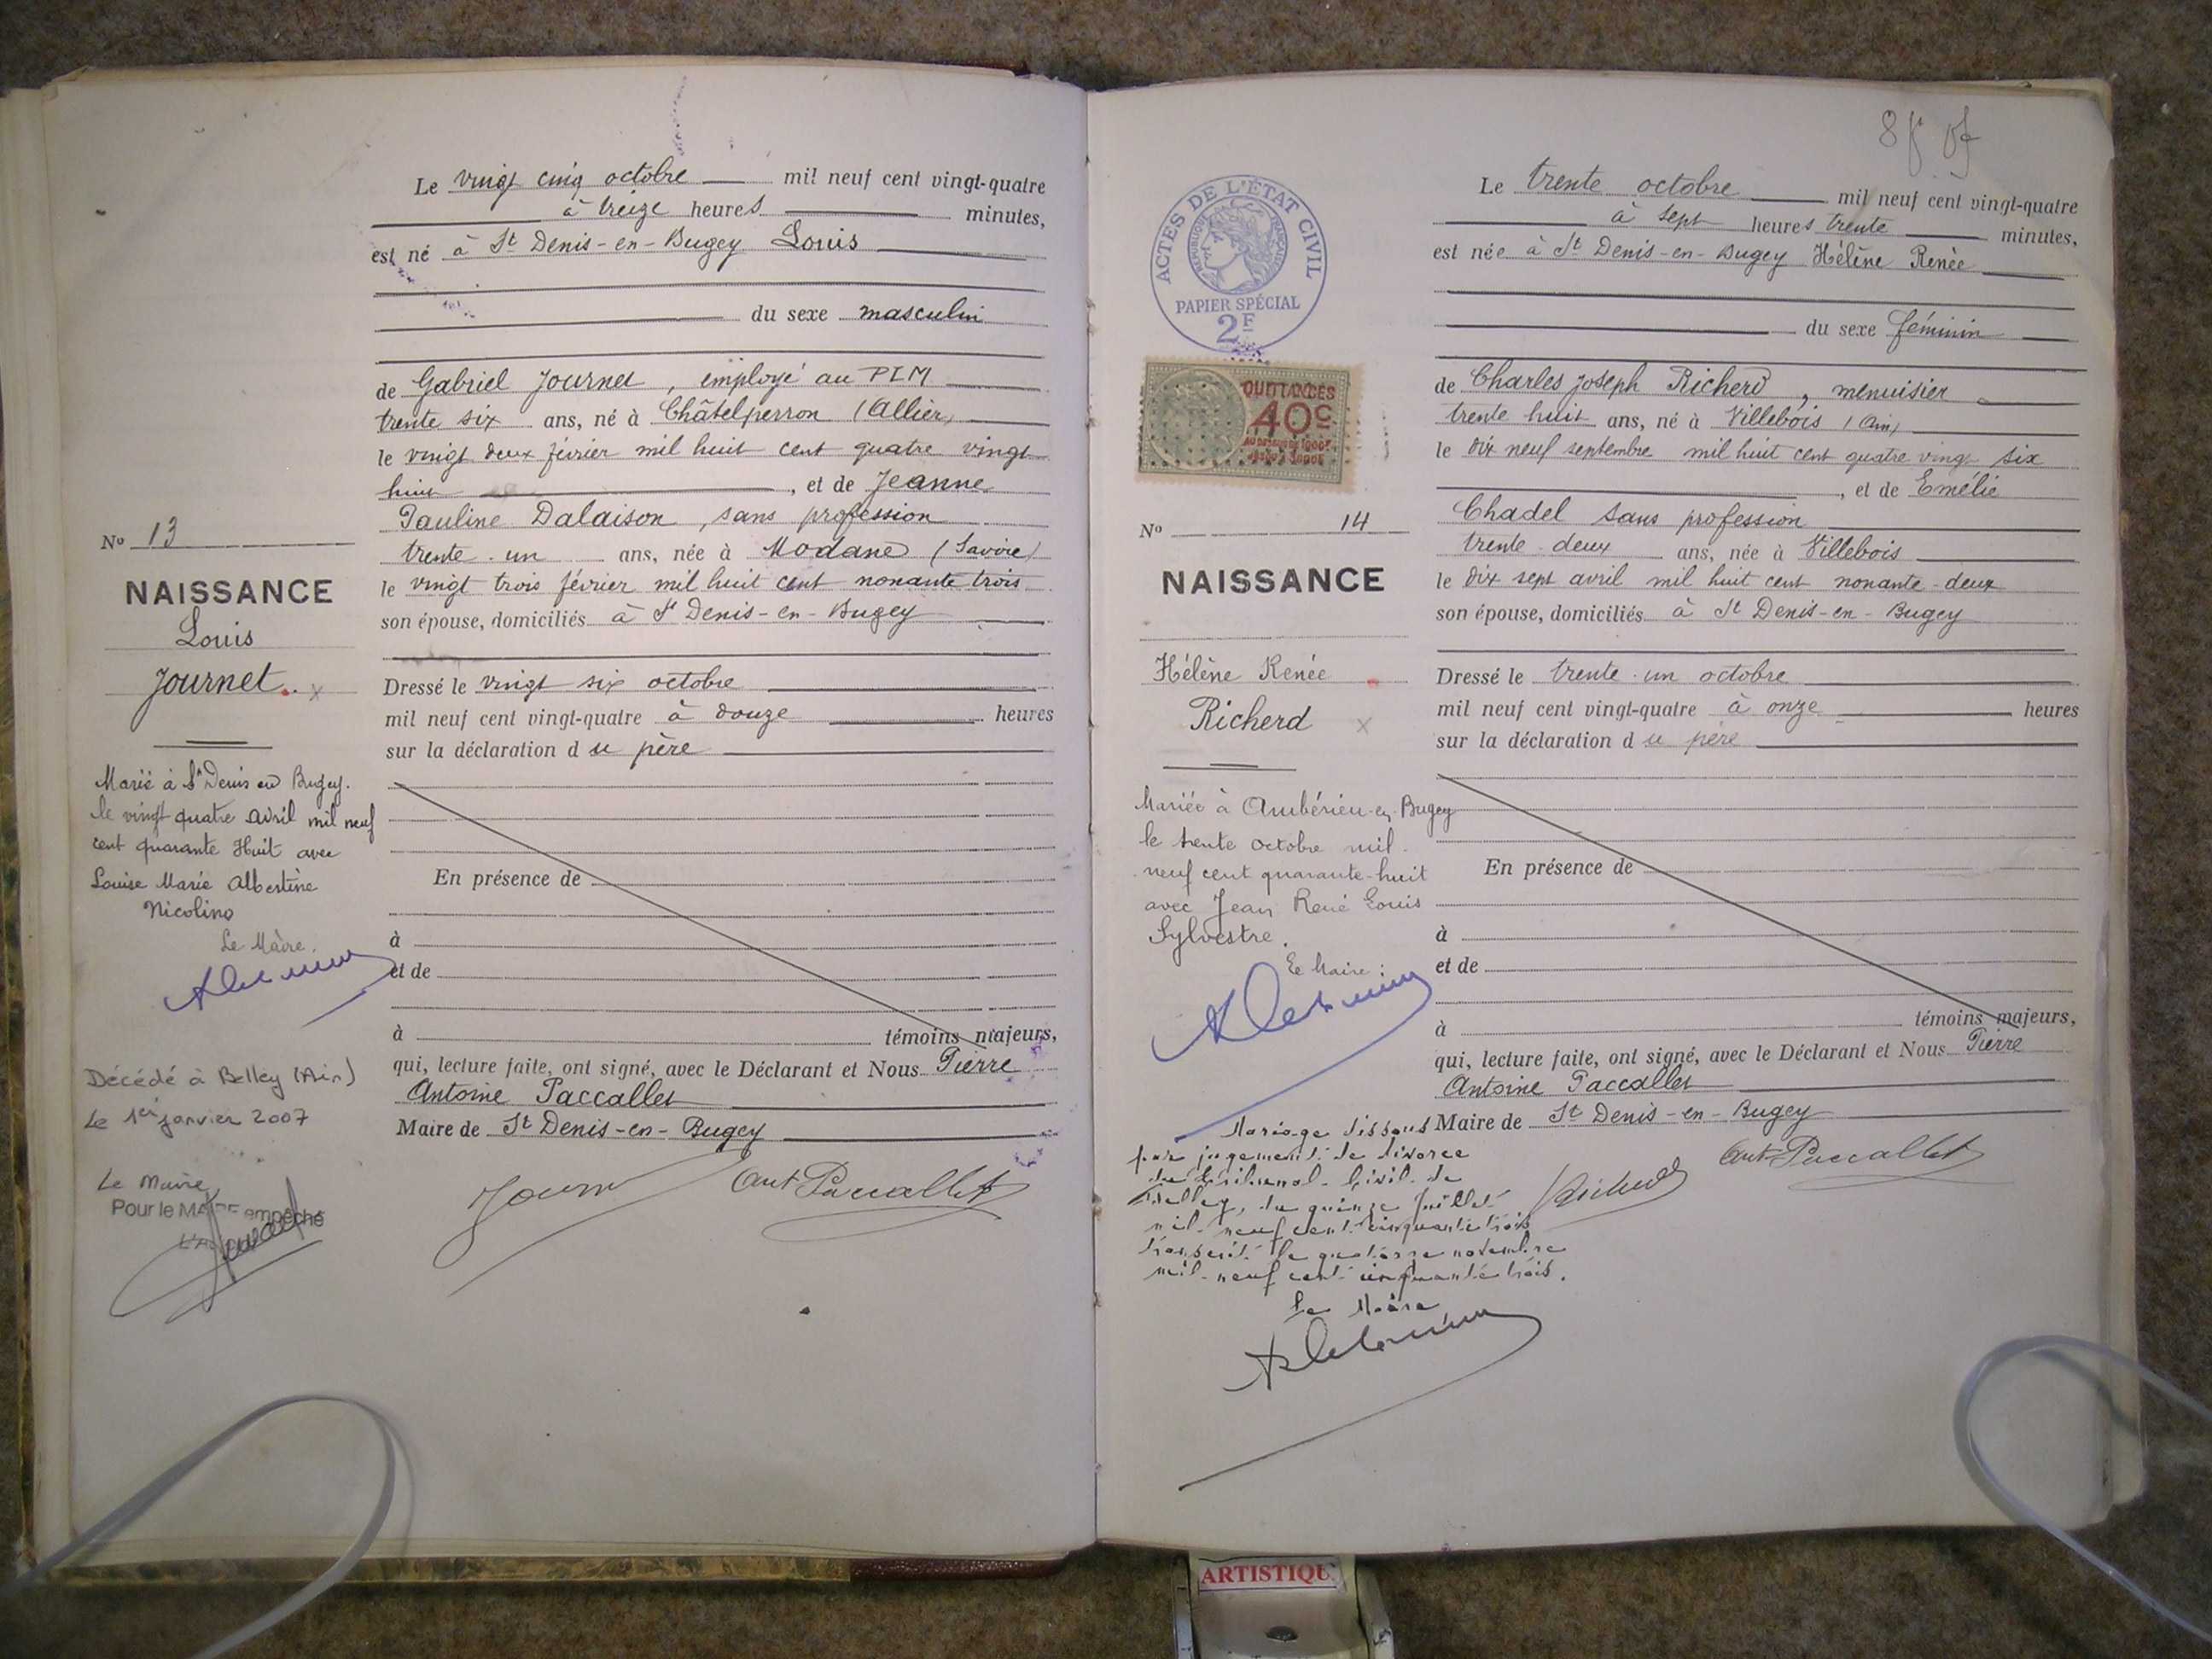 Le vingt cinq octobre mil neuf cent vingt-quatre
à treize heures minutes,
est né à St Denis-en-Bugey Louis
du sexe masculin
de Gabriel Journet, employé au PLM
trente six ans, né à Châtelperron (Allier)
le vingt deux février mil huit cent quatre vingt
huit, et de Jeanne
Pauline Dalaison, sans profession
trente-un ans, née à Modane (Savoie)
le vingt trois février mil huit cent nonante trois
son épouse, domiciliés à St Denis-en-Bugey
Dressé le vingt six octobre
mil neuf cent vingt-quatre à douze heures
sur la déclaration du père
En présence de
à
et de
à témoins majeurs,
qui, lecture faite, ont signé, avec le Déclarant et Nous Pierre
Antoine Paccallet
Maire de St Denis-en-Bugey
Ant Paccallet
No 13
NAISSANCE
Louis
Journet
Marié à St Denis en Bugey
le vingt quatre avril mil neuf
cent quarante Huit avec
Louise Marie Albertine
Nicolino
Le Maire.
Décédé à Belley (Ain)
Le 1er janvier 2007
Le Maire,
Pour le MAIRE empêché
8f
ACTES DE L'ÉTAT CIVIL
RÉPUBLIQUE FRANÇAISE
PAPIER SPÉCIAL
2F
QUITTANCES
40c
No 14
NAISSANCE
Hélène Renée
Richerd
Mariée à Ambérieu-en-Bugey
le trente octobre mil
neuf cent quarante-huit
avec Jean René Louis
Sylvestre.
Le Maire:
Mariage dissous
par jugement de divorce
du Tribunal Civil de
Belley, du quinze Juillet
mil neuf cent cinquante trois
transcrit le quatorze novembre
mil-neuf cent cinquante trois.
Le Maire
Le trente octobre mil neuf cent vingt-quatre
à sept heures trente minutes,
est née à St Denis-en-Bugey Hélène Renée
du sexe féminin
de Charles Joseph Richerd, menuisier
trente huit ans, né à Villebois (Ain)
le dix neuf septembre mil huit cent quatre vingt six
, et de Emélie
Chadel sans profession
trente-deux ans, née à Villebois
le dix sept avril mil huit cent nonante-deux
son épouse, domiciliés à St Denis-en-Bugey
Dressé le trente-un octobre
mil neuf cent vingt-quatre à onze heures
sur la déclaration du père
En présence de
à
et de
à témoins majeurs,
qui, lecture faite, ont signé, avec le Déclarant et Nous Pierre
Antoine Paccallet
Maire de St Denis-en-Bugey
Richerd
Ant Paccallet
ARTISTIQU